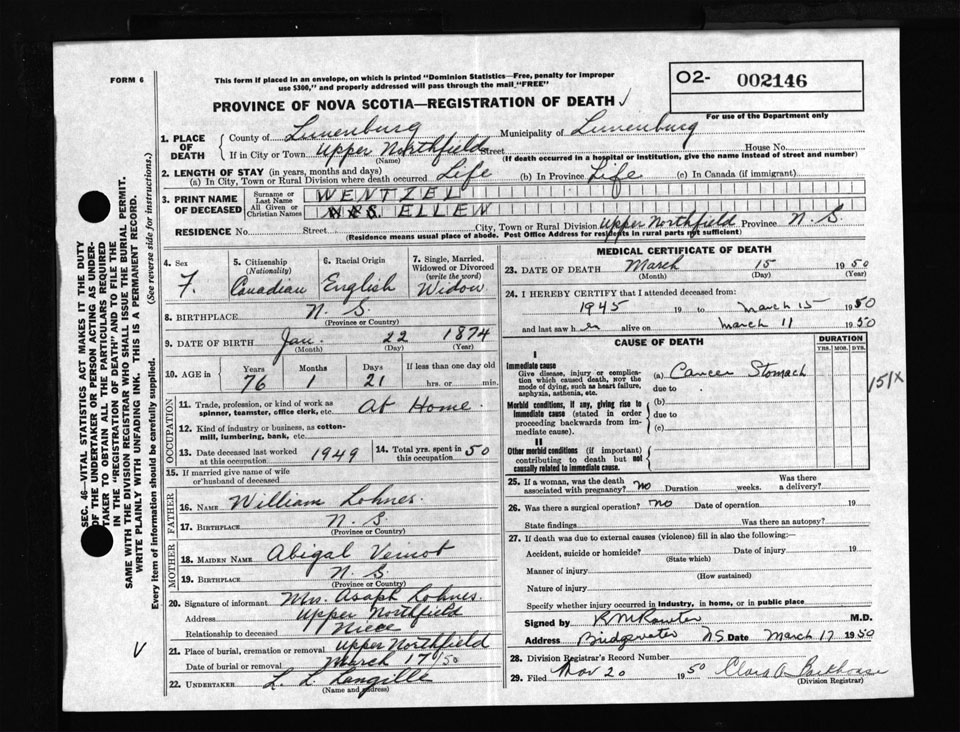 FORM 6
This form if placed in an envelope, on which is printed "Dominion Statistics—Free, penalty for improper
use $300," and properly addressed will pass through the mail "FREE"
O2- 002146
For use of the Department only
PROVINCE OF NOVA SCOTIA—REGISTRATION OF DEATH
1. PLACE OF DEATH County of Lunenburg Municipality of Lunenburg
If in City or Town Upper Northfield Street House No.
(Name) (If death occurred in a hospital or institution, give the name instead of street and number)
2. LENGTH OF STAY (in years, months and days)
(a) In City, Town or Rural Division where death occurred Life (b) In Province Life (c) In Canada (if immigrant)
3. PRINT NAME OF DECEASED Surname or Last Name WENTZEL
All Given or Christian Names ELLEN
RESIDENCE No. Street City, Town or Rural Division Upper Northfield Province N. S.
(Residence means usual place of abode. Post Office Address for residents in rural parts not sufficient)
4. Sex 5. Citizenship (Nationality) 6. Racial Origin 7. Single, Married, Widowed or Divorced (write the word)
F. Canadian English Widow
8. BIRTHPLACE N. S.
(Province or Country)
9. DATE OF BIRTH Jan. 22 1874
(Month) (Day) (Year)
10. AGE in Years Months Days If less than one day old
76 1 21 hrs. or min.
OCCUPATION
11. Trade, profession, or kind of work as spinner, teamster, office clerk, etc. At Home.
12. Kind of industry or business, as cotton-mill, lumbering, bank, etc.
13. Date deceased last worked at this occupation 1949 14. Total yrs. spent in this occupation 50
15. If married give name of wife or husband of deceased
FATHER
16. Name William Lohnes.
17. Birthplace N. S.
(Province or Country)
MOTHER
18. Maiden Name Abigal Veinot
19. Birthplace N. S.
(Province or Country)
20. Signature of informant Mrs. Asaph Lohnes.
Address Upper Northfield
Relationship to deceased Niece
21. Place of burial, cremation or removal Upper Northfield
Date of burial or removal March 17/50
22. Undertaker L. L. Langille
(Name and address)
MEDICAL CERTIFICATE OF DEATH
23. DATE OF DEATH March 15 1950
(Month) (Day) (Year)
24. I HEREBY CERTIFY that I attended deceased from:
1945 19 to March 15 1950
and last saw her alive on March 11 1950
CAUSE OF DEATH DURATION
YRS. MOS. DYS.
I
Immediate cause
Give disease, injury or complication which caused death, nor the mode of dying, such as heart failure, asphyxia, asthenia, etc.
(a) Cancer Stomach
due to
151X
Morbid conditions, if any, giving rise to immediate cause (stated in order proceeding backwards from immediate cause).
(b)
due to
(c)
II
Other morbid conditions (if important) contributing to death but not causally related to immediate cause.
25. If a woman, was the death associated with pregnancy? No Duration weeks. Was there a delivery?
26. Was there a surgical operation? No Date of operation 19
State findings Was there an autopsy?
27. If death was due to external causes (violence) fill in also the following:
Accident, suicide or homicide? Date of injury 19
(State which)
Manner of injury
(How sustained)
Nature of injury
Specify whether injury occurred in industry, in home, or in public place
Signed by M.D.
Address Bridgewater NS Date March 17 1950
28. Division Registrar's Record Number
29. Filed Nov 20 1950 Clara A
(Division Registrar)
SEC. 46—VITAL STATISTICS ACT MAKES IT THE DUTY
OF THE UNDERTAKER OR PERSON ACTING AS UNDER-
TAKER TO OBTAIN ALL THE PARTICULARS REQUIRED
IN THE "REGISTRATION OF DEATH" AND TO FILE THE
SAME WITH THE DIVISION REGISTRAR WHO SHALL ISSUE THE BURIAL PERMIT.
WRITE PLAINLY WITH UNFADING INK. THIS IS A PERMANENT RECORD.
Every item of information should be carefully supplied. (See reverse side for instructions.)